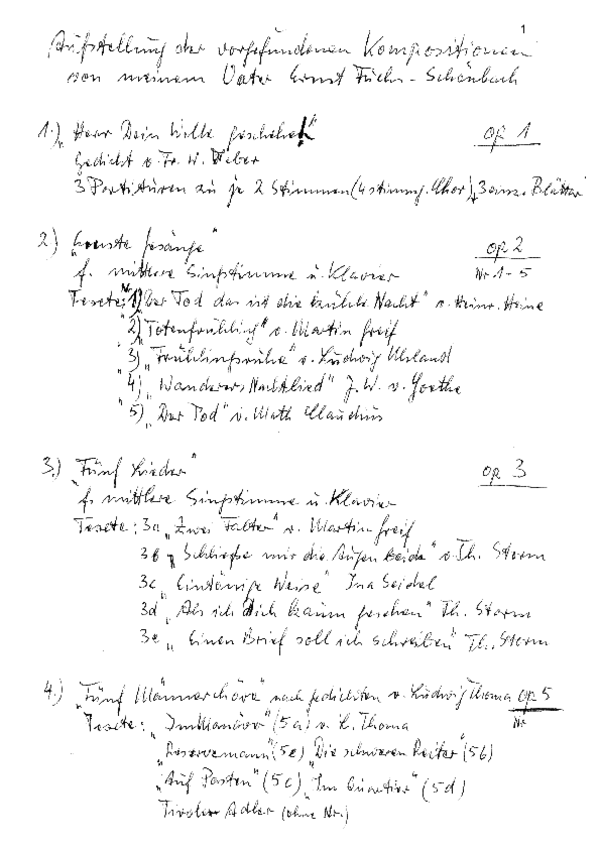 1
Aufstellung der vorgefundenen Kompositionen
von meinem Vater Ernst Fuchs-Schönbach
1.) „Herr Dein Wille geschehe!" op 1
Gedicht v. Fr. W. Weber
3 Partituren zu je 2 Stimmen (4 stimmg. Chor), 3 Blätter
2) „Ernste Gesänge" op 2
f. mittlere Singstimme u. Klavier Nr. 1-5
Texte: Nr. 1) „Der Tod das ist die kühle Nacht" v. Heinr. Heine
" 2) „Totenfrühling" v. Martin Greif
" 3) „Frühlingsruhe" v. Ludwig Uhland
" 4) „Wanderers Nachtlied" J. W. v. Goethe
" 5) „Der Tod" v. Math Claudius
3.) „Fünf Lieder" op 3
f. mittlere Singstimme u. Klavier
Texte: 3a „Zwei Falter" v. Martin Greif
3b „Schließe mir die Augen Beide" v. Th. Storm
3c „Eintönige Weise" Ina Seidel
3d „Als ich Dich kaum gesehen" Th. Storm
3e „Einen Brief soll ich schreiben" Th. Storm
4.) „Fünf Männerchöre" nach Gedichten v. Ludwig Thoma op 5
Texte: „Im Manöver" (5a) v. L. Thoma Nr
„Reservemann" (5e) „Die schweren Reiter" (5b)
„Auf Posten" (5c) „Im Quartier" (5d)
Tiroler Adler (ohne Nr.)